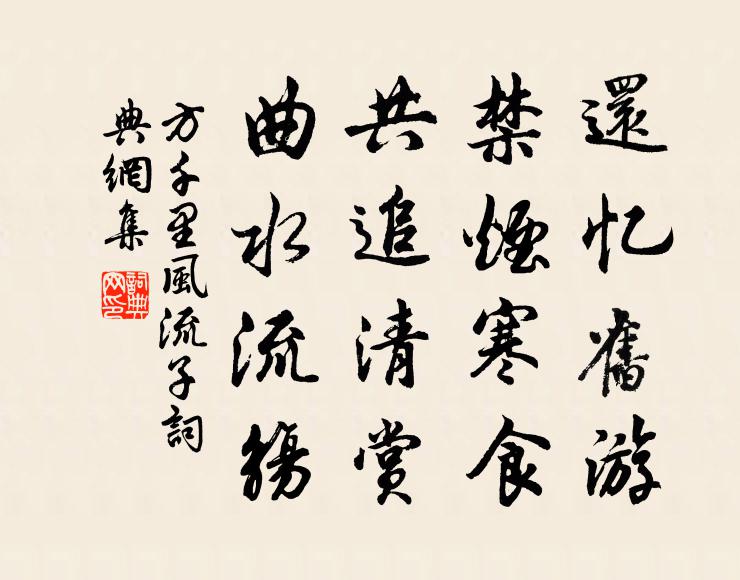 還忆舊游
禁煙寒食
共追清賞
曲水流觴
方千里風流子詞
典網集
詞典网印